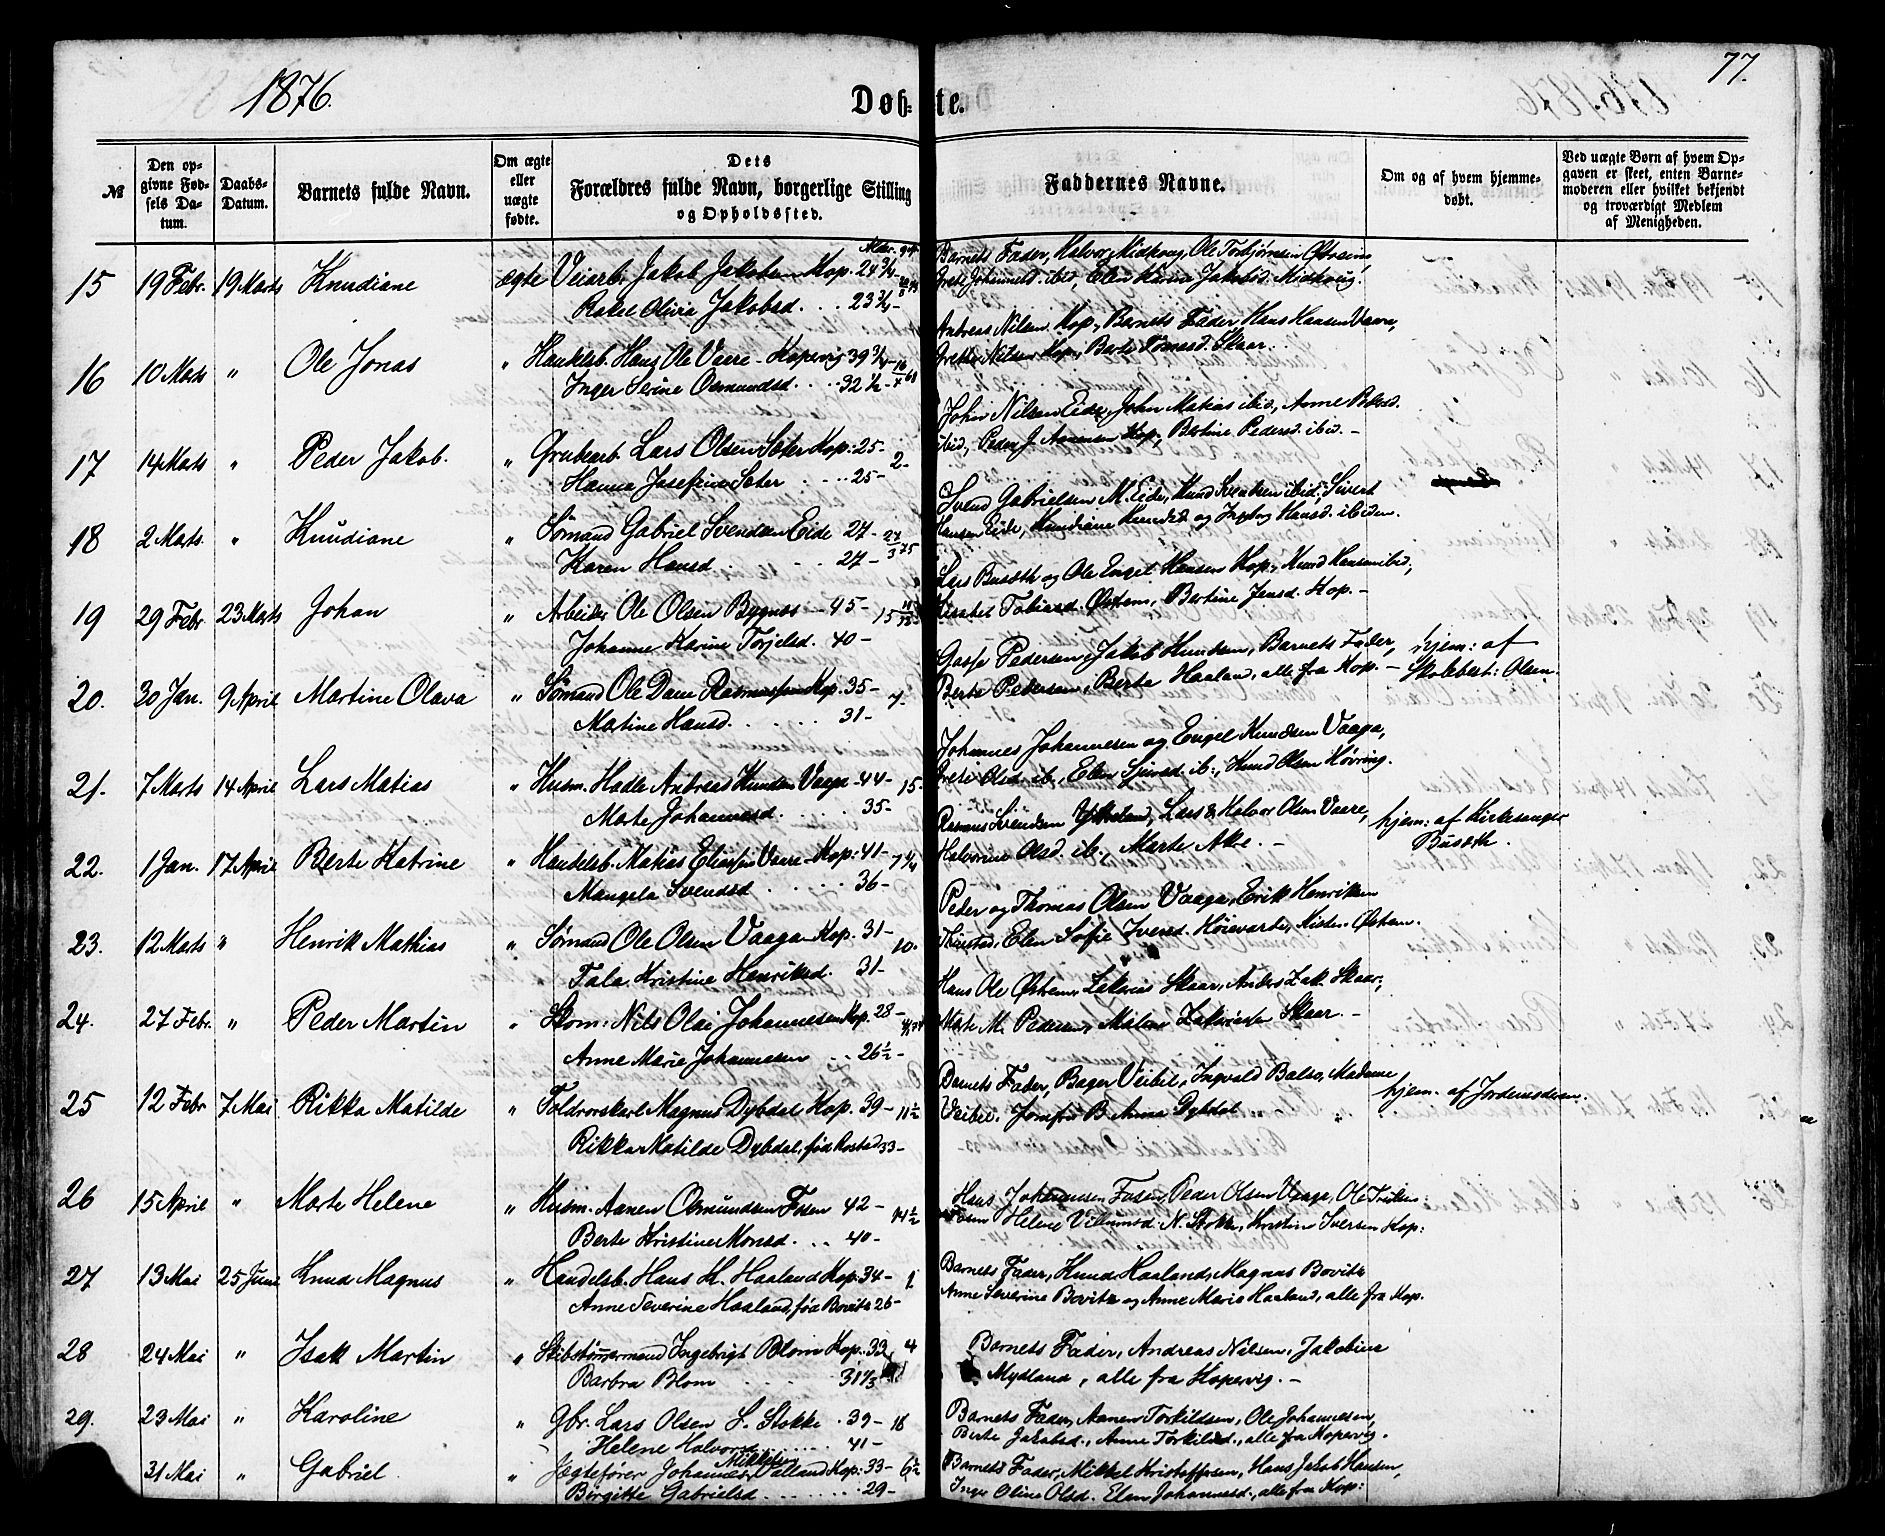 1876.
Døb-te.
77.
№
Den op-givne Fød-sels Da-tum.
Daabs-Datum.
Barnets fulde Navn.
Om ægte eller uægte fødte.
Dets Forældres fulde Navn, borgerlige Stilling og Opholdssted.
Faddernes Navne.
Om og af hvem hjemme-døbt.
Ved uægte Børn af hvem Op-gaven er skeet, enten Barne-moderen eller hvilket bekjendt og troværdigt Medlem af Menigheden.
15 19 Febr. 19 Marts Knudiane ægte Veiarb. Jakob Jakobsen Kop. 24 3/4
Rakel Olivia Jakobsd. 23 3/4
Barnets Fader, Halvor Midhoug, Ole Torbjørnsen Østreim,
Grete Johannesd. ibid, Elen Karine Jakobsd. Midhoug.
16 10 Marts " Ole Jonas " Handelsb. Hans Ole Vaere - Kopervig 39 3/4
Inger Serine Osmundsd. 32 1/2
Andreas Nilsen Kop., Barnets Fader, Hans Hansen Vaere,
Grethe Nilsen Kop., Berte Skaar.
17 14 Marts " Peder Jakob. " Grubearb. Lars Olsen Sæter Kop: 25 - 2 -
Hanna Josefine Sæter 25 -
John Nilsen Eide, John Matias ibid., Anne
ibid, Peder J. Aanensen Kop., Bertine Pedersd. ibid. -
18 2 Marts. " Knudiane " Sømand Gabriel Svendsen Eide 27 - 27/3 75
Karen Hansd. 27 -
Svend Gabrielsen M. Eide, Knud Knudsen ibid, Sivert
Hansen Eide, Knudiane Knudsd. og Ingeborg Hansd. ibidem.
19 29 Febr. 23 Marts Johan " Arbeider Ole Olsen Bygnes - 45 - 15
Johanne Karine Torjelsd. 40 -
Lars Busæth og Ole Engel Hansen Kop., Knud Hansen ibid,
Lisabet Tobiasd. Østrem, Bertine Jensd. Kop. -
20. 30 Jan. 9 April Martine Olava " Sømand Ole Dane Rasmussen Kop. 35 - 7 -
Martine Hansd. 31 -
Pedersen, Jakob Knudsen, Barnets Fader,
Berte Pedersen, Berte Haaland, alle fra Kop. -
hjem: af
Skolebest: Olsen.
21. 7 Marts 14 April Lars Matias " Husm. Hadle Andreas Knudsen Vaage 44 - 15 -
Marte Johannesd. 35 -
Johannes Johannesen og Engel Knudsen Vaaga,
Grete Olsd. ib., Elen Sjursd. ib., Knud Olsen Høvring.
22. 1 Jan. 17 April Berte Katrine " Handelsb. Matias Eliassen Vaere - Kop: 41 - 7 1/4
Mangela Svendsd 36 -
Rasmus Svendsen, Lars & Halvor Olsen Vaere,
Halvorine Olsd. ib., Marte Ake. -
hjem: af Kirkesanger
Busæth.
23. 12 Marts " Henrik Mathias " Sømand Ole Olsen Vaaga - Kop. 31 - 10.
Tala Kristine Henriksd. 31 -
Peder og Thomas Olsen Vaaga, Erik Henriksen
Elen Sofie Iversd. Høievarde, Østrem.
24. 27 Febr. " Peder Martin " Skom: Nils Olai Johannesen Kop. 28 -
Anne Marie Johannesen 26 1/2 -
Hans Ole Østrem, Zakarias Skaar, Anders Zak. Skaar,
Marte M. Pedersen, Malene Zakriasen Skaar. -
25 12 Febr 7 Mai Rikka Matilde " Toldrorskarl Magnus Dybdal Kop. 39 - 11 1/2
Rikka Matilde Dybdal, fød Rostad 33 -
Barnets Fader, Bager Veibel, Ingvald Balso, Madame
Veibel, Jomfru B. Anna Dybdal
hjem. af Jordemoderen.
26 15 April " Marte Helene " Husm. Aanen Osmundsen Fosen 42 - 14 1/2
Berte Kristine Monsd. 40 -
Hans Johannesen Fosen, Peder Olsen Vaage, Ole
Fosen Helene N. Stokke, Kristin Iversen Kop:
27 13 Mai 25 Juni Knud Magnus " Handelsb. Hans K. Haaland Kop. 34 - 1
Anne Severine Haaland, fød Bovitz 26 -
Barnets Fader, Knud Haaland, Magnus Bovitz
Anne Severine Bovitz og Anne Marie Haaland, alle fra Kop.
28 24 Mai " Isak Martin " Skibstømmermand Ingebrigt Blom Kop. 33 4
Barbra Blom 31 1/3
Barnets Fader, Andreas Nilsen, Jakobine
Mydland, alle fra Kopervig. -
29. 23 Mai " Karoline " Gbr. Lars Olsen S. Stokke 39 - 16
Helene Halvorsd. 41 -
Barnets Fader, Aanen Torkildsen, Ole Johannesen,
Berte Jakobsd., Anne Torkildsd., alle fra Kopervig.
31 Mai " Gabriel " Jægtefører Johannes Mikkelsen Valland Kop: 33 - 6 1/2
Birgitte Gabrielsd. 29 -
Barnets Fader, Mikkel Kristoffersen, Hans Jakob Hansen,
Inge Oline Olsd. Elen Johannesd., alle fra Kop: